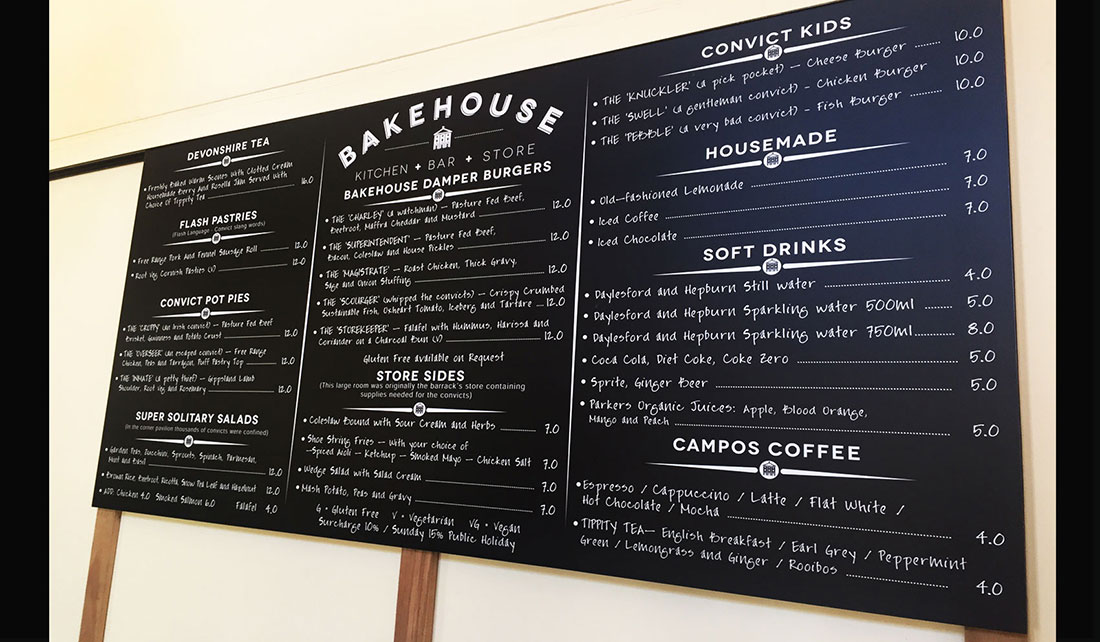 DEVONSHIRE TEA
• Freshly Baked Warm Scones With Clotted Cream
Housemade Berry And Rosella Jam Served With
Choice Of Tippity Tea 16.0
FLASH PASTRIES
(Flash Language - Convict slang words)
• Free Range Pork And Fennel Sausage Roll 12.0
• Root Veg Cornish Pasties (V) 12.0
CONVICT POT PIES
• THE 'CROPPY' (an Irish convict) – Pasture Fed Beef
Brisket, Guinness and Potato Crust 12.0
• THE 'OVERSEER' (an escaped convict) – Free Range
Chicken, Peas and Tarragon, Puff Pastry Top 12.0
• THE 'INMATE' (a petty thief) – Gippsland Lamb
Shoulder, Root Veg and Rosemary 12.0
SUPER SOLITARY SALADS
(In the corner pavilion thousands of convicts were confined)
• Garden Peas, Zucchini, Sprouts, Spinach, Parmesan,
Mint and Basil 12.0
• Brown Rice, Beetroot, Ricotta, Snow Pea Leaf and Hazelnut 12.0
• ADD: Chicken 4.0 Smoked Salmon 6.0 Falafel 4.0
BAKEHOUSE
KITCHEN + BAR + STORE
BAKEHOUSE DAMPER BURGERS
• THE 'CHARLEY' (a watchman) – Pasture Fed Beef,
Beetroot, Maffra Cheddar and Mustard 12.0
• THE 'SUPERINTENDENT' – Pasture Fed Beef,
Bacon, Coleslaw and House Pickles 12.0
• THE 'MAGISTRATE' – Roast Chicken, Thick Gravy,
Sage and Onion Stuffing 12.0
• THE 'SCOURGER' (whipped the convicts) – Crispy Crumbed
Sustainable Fish, Oxheart Tomato, Iceberg and Tartare 12.0
• THE 'STOREKEEPER' – Falafel with Hummus, Harissa and
Coriander on a Charcoal Bun (V) 12.0
Gluten Free available on Request
STORE SIDES
(This large room was originally the barrack's store containing
supplies needed for the convicts)
• Coleslaw Bound with Sour Cream and Herbs 7.0
• Shoe String Fries – With your choice of
–Spiced Aioli – Ketchup – Smoked Mayo – Chicken Salt 7.0
• Wedge Salad with Salad Cream 7.0
• Mash Potato, Peas and Gravy 7.0
G • Gluten Free V • Vegetarian VG • Vegan
Surcharge 10% / Sunday 15% Public Holiday
CONVICT KIDS
• THE 'KNUCKLER' (a pick pocket) – Cheese Burger 10.0
• THE 'SWELL' (a gentleman convict) - Chicken Burger 10.0
• THE 'PEBBLE' (a very bad convict) - Fish Burger 10.0
HOUSEMADE
• Old-fashioned Lemonade 7.0
• Iced Coffee 7.0
• Iced Chocolate 7.0
SOFT DRINKS
• Daylesford and Hepburn Still water 4.0
• Daylesford and Hepburn Sparkling water 500ml 5.0
• Daylesford and Hepburn Sparkling water 750ml 8.0
• Coca Cola, Diet Coke, Coke Zero 5.0
• Sprite, Ginger Beer 5.0
• Parkers Organic Juices: Apple, Blood Orange,
Mango and Peach 5.0
CAMPOS COFFEE
• Espresso / Cappuccino / Latte / Flat White /
Hot Chocolate / Mocha 4.0
• TIPPITY TEA– English Breakfast / Earl Grey / Peppermint
Green / Lemongrass and Ginger / Rooibos 4.0